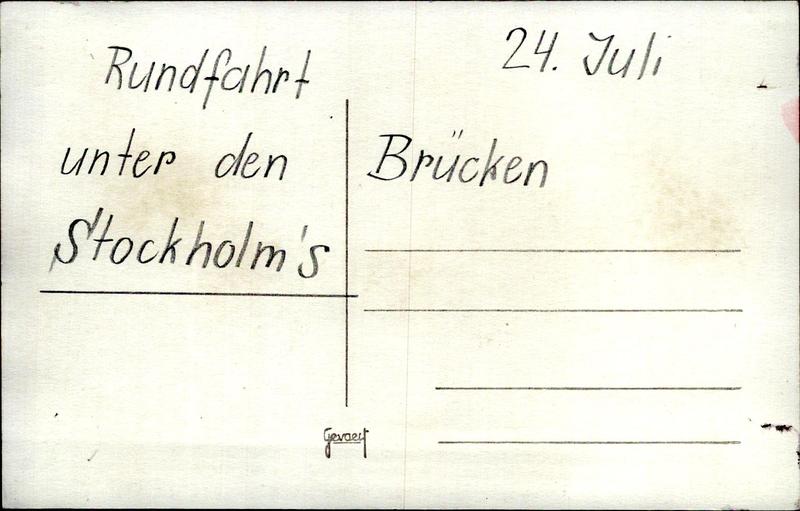 24. Juli
Rundfahrt
unter den Brücken
Stockholm's
Gevaert